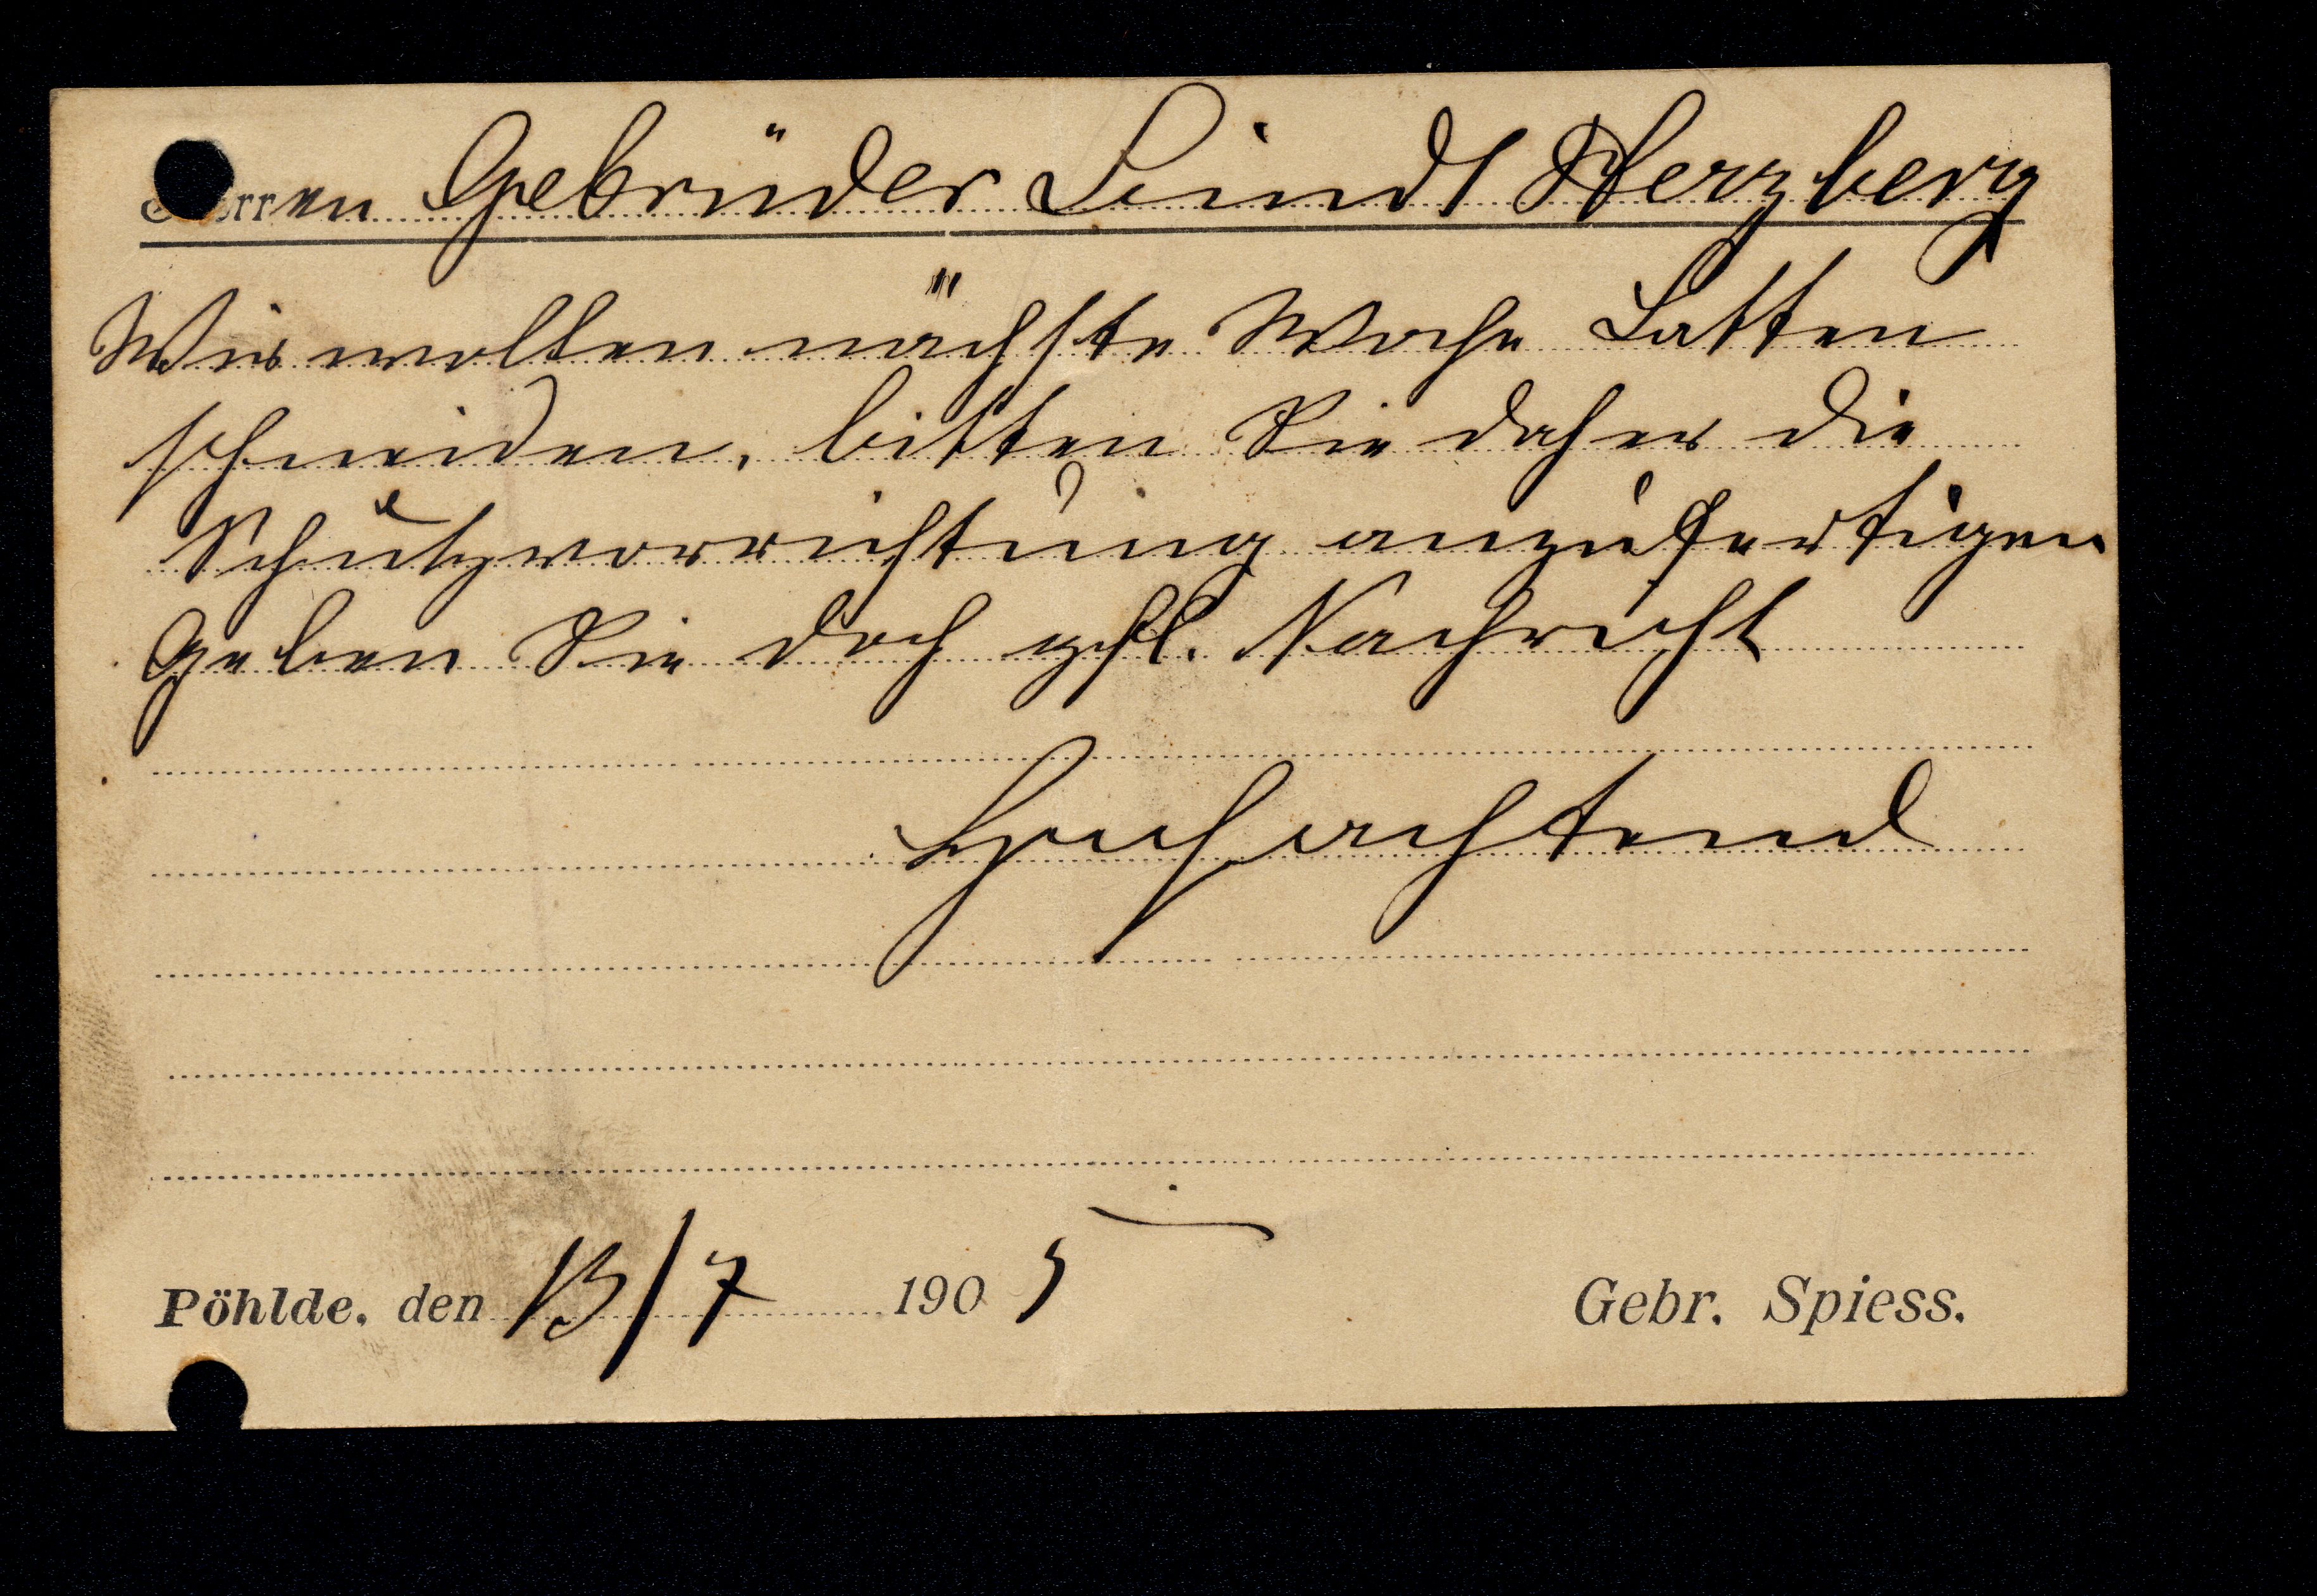 Herren Gebrüder Lindt Herzberg
Wir wollen nächste Woche Latten
schneiden, bitten Sie daher die
Schutzvorrichtung anzufertigen
Geben Sie doch gfl. Nachricht
Hochachtend
Pöhlde, den 13/7 1905 Gebr. Spiess.